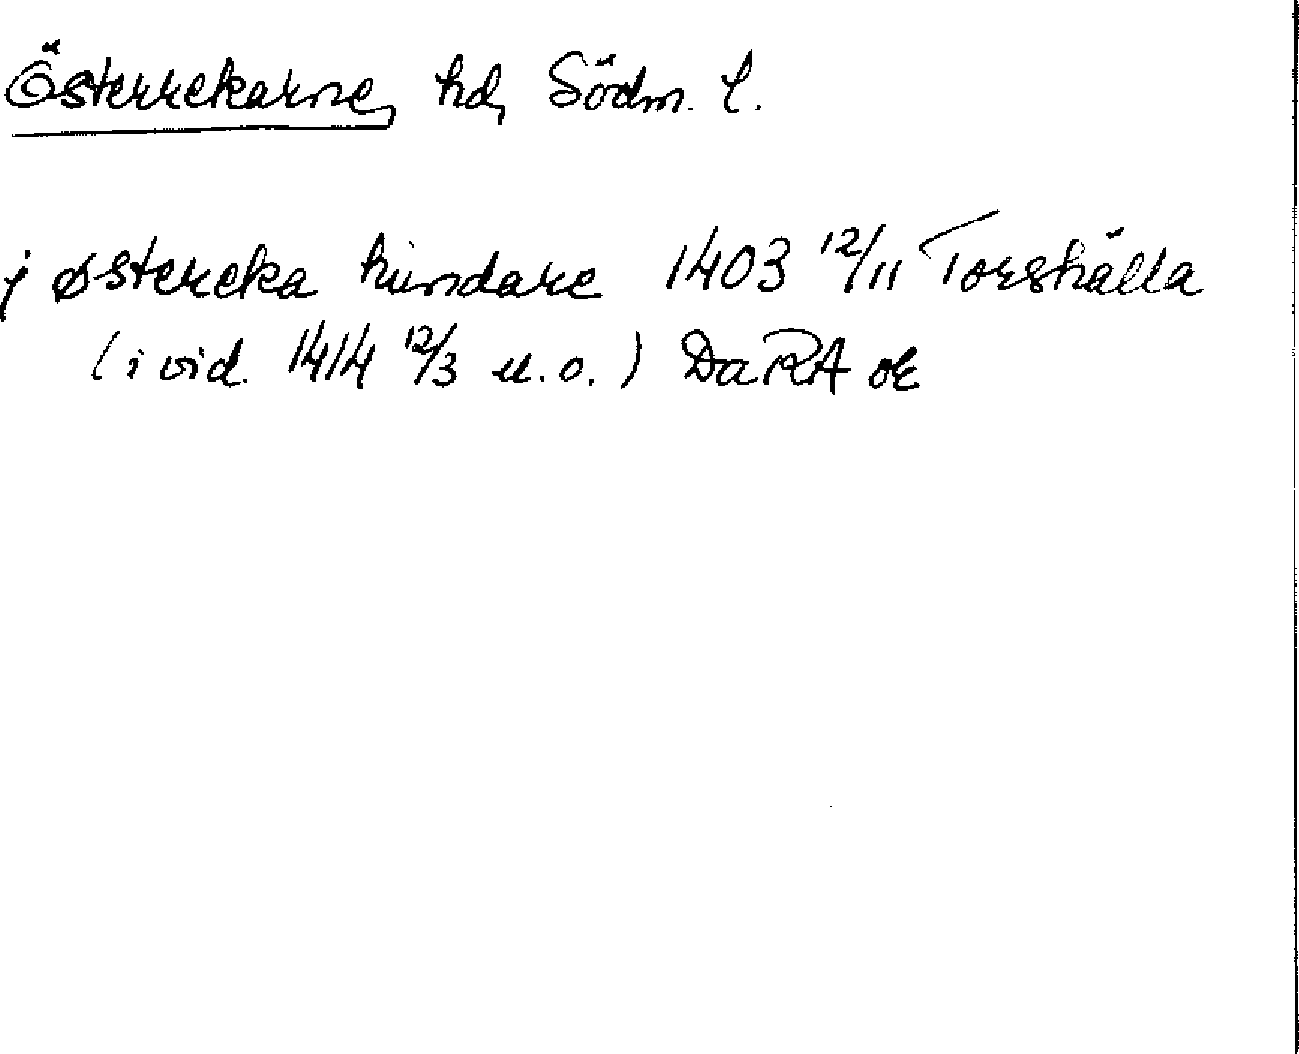 Österrekarne, hd, Södm. l.
j østereka hundare 1403 12/11 Torshälla
(i vid. 1414 12/3 u.o.) DaRA or